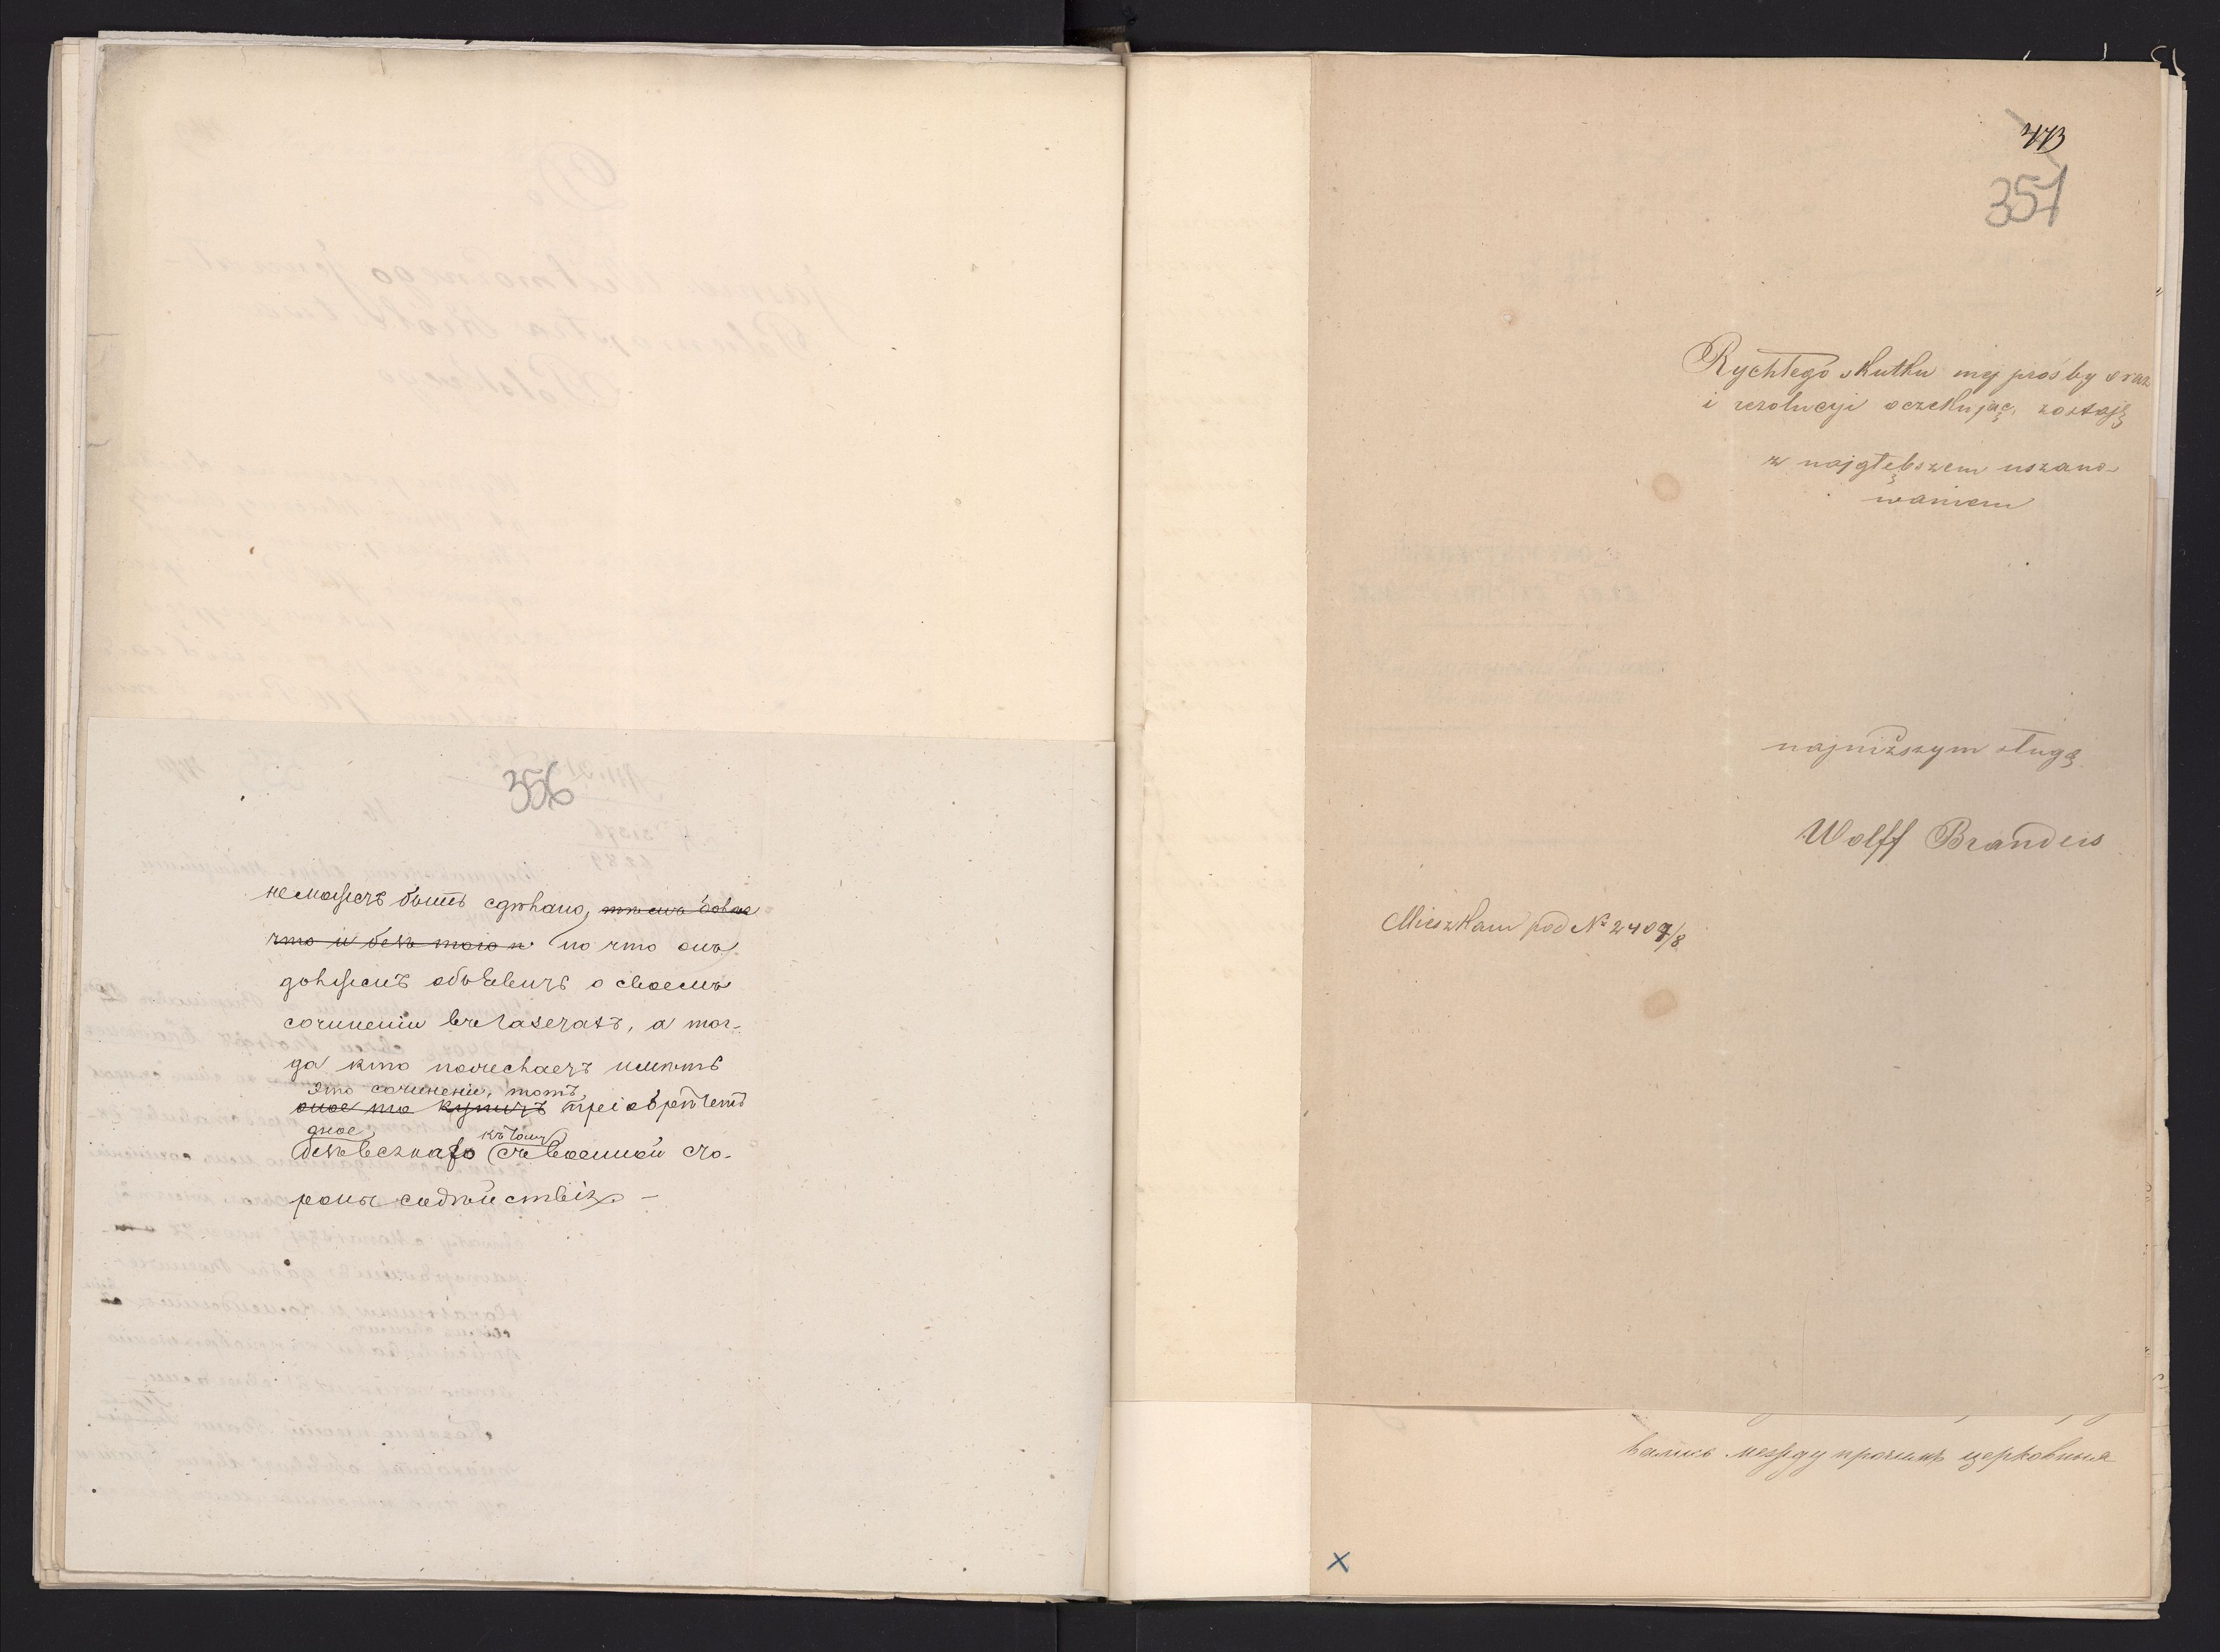 356
неможетъ быть сдѣлано,
что и безъ того но что онъ
долженъ объявить о своемъ
сочиненіи въ газетахъ, а тог-
да кто пожелаетъ имѣть
это сочиненіе, тотъ
оное то купитъ пріобрѣтетъ
оное къ тому
безъ всякаго съ военной сто-
роны содѣйствія. —
473
351
Rychłego skutku mej prośby oraz
i rezolucyi oczekując, zostaję
z najgłębszem uszano-
waniem
najniższym sługą
Wolff Brandeis
Mieszkam pod № 2407/8
вались между прочимъ церковныя
x